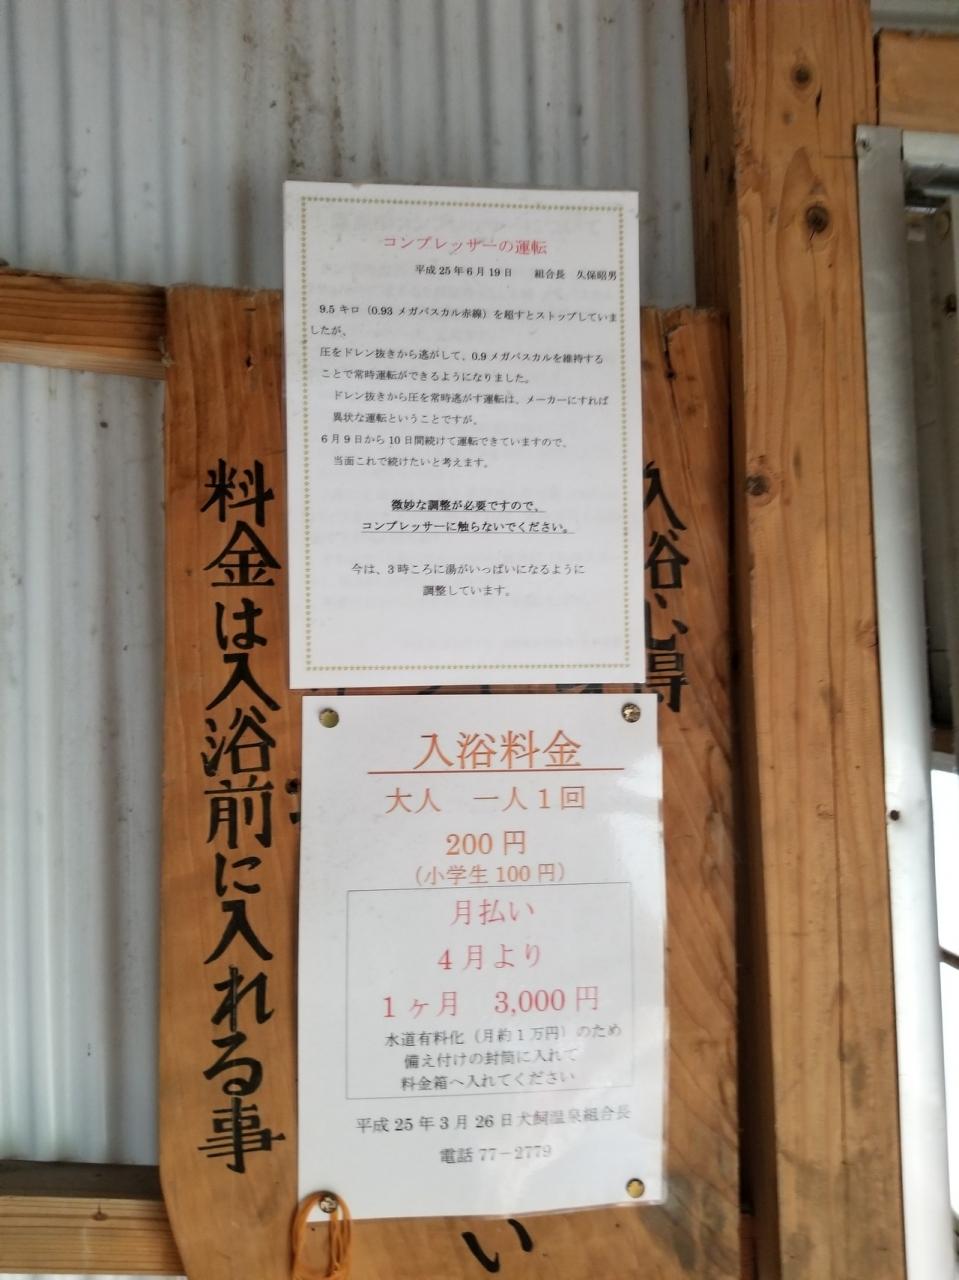 コンプレッサーの運転
平成25年6月19日　組合長　久保昭男
9.5キロ（0.93メガパスカル赤線）を超すとストップしていま
したが、
圧をドレン抜きから逃がして、0.9メガパスカルを維持する
ことで常時運転ができるようになりました。
ドレン抜きから圧を常時逃がす運転は、メーカーにすれば
異状な運転ということですが、
6月9日から10日間続けて運転できていますので、
当面これで続けたいと考えます。
微妙な調整が必要ですので、
コンプレッサーに触らないでください。
今は、3時ころに湯がいっぱいになるように
調整しています。
入浴料金
大人　一人1回
200円
（小学生100円）
月払い
4月より
1ヶ月　3,000円
水道有料化（月約1万円）のため
備え付けの封筒に入れて
料金箱へ入れてください
平成25年3月26日犬飼温泉組合長
電話77－2779
入浴心得
い
料金は入浴前に入れる事